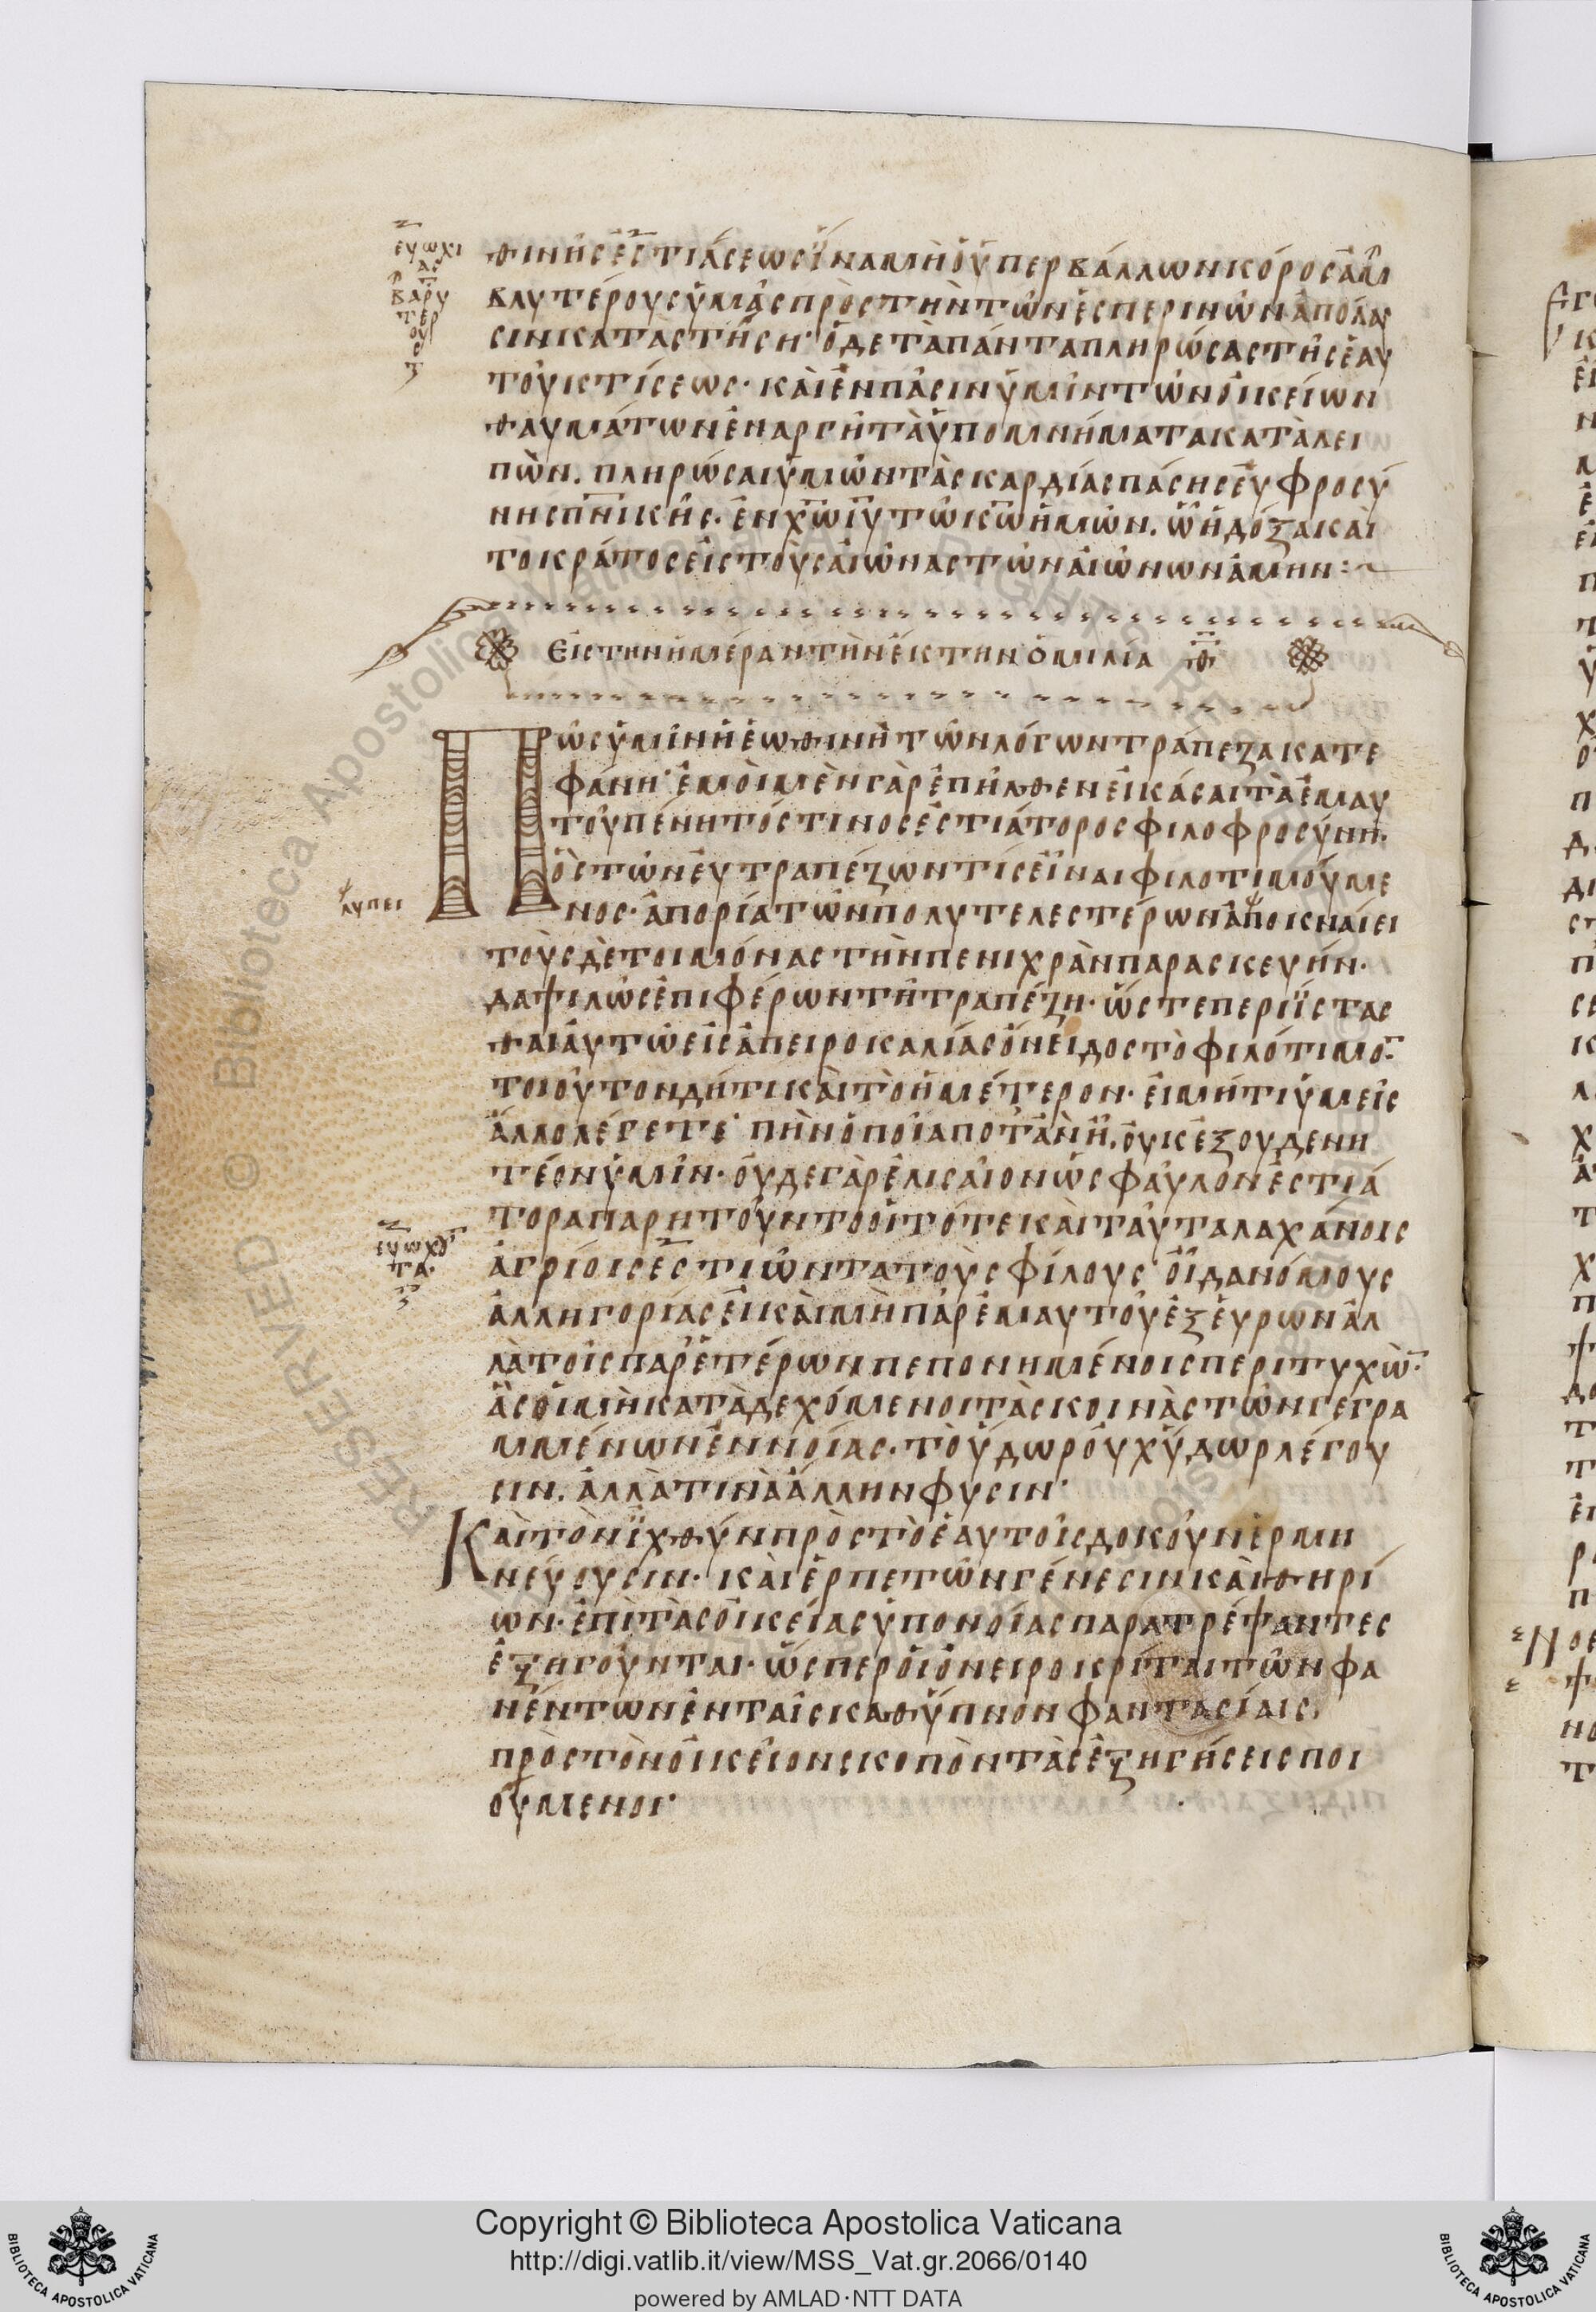 ευωχι
ας
βαρυ
τερ
ους
θινῆς ἑστιάσεως ἵνα μὴ ὁ ὑπερβάλλων κόρος ἀμ
βλυτέρους ὑμᾶς πρὸς τὴν τῶν ἑσπερινῶν ἀπόλαυ
σιν καταστήσῃ· ὁ δε τὰ πάντα πληρώσας τῆς ἑαυ
τοῦ κτίσεως· καὶ ἐν πᾶσιν ὑμῖν τῶν οἰκείων
θαυμάτων ἐναργῆ τὰ ὑπομνήματα καταλει
πών. πληρώσαι ὑμῶν τὰς καρδίας πάσης εὐφροσύ
νης πνικῆς. ἐν χω ιυ τῶ κω ἡμῶν. ὧ ἡ δόξα καὶ
τὸ κράτος εἰς τοὺς αἰῶνας τῶν αἰώνων ἀμην:
Εἰς τὴν ἡμέραν τὴν ἕκτην ὁμιλία θ
Πῶς ὑμῖν ἡ ἑωθινὴ τῶν λόγων τράπεζα κατε
φάνη· ἐμοὶ μὲν γὰρ ἐπῆλθεν εἰκάσαι τὰ ἐμαυ
τοῦ πένητός τινος ἑστιάτορος φιλοφροσύνη·
ὃς τῶν εὐτραπέζων τὶς εἶναι φιλοτιμούμε
λυπει
νος· ἀπορία τῶν πολυτελεστέρων ἀποκναίει
τοὺς δαιτοιμόνας τὴν πενιχρὰν παρασκευήν·
δαψιλῶς ἐπιφέρων τῆ τραπέζη· ὥστε περιΐστας
θαι αὐτῶ εἰς ἀπειροκαλίας ὄνειδος τὸ φιλότιμο
τοιοῦτον δή τι καὶ τὸ ἡμέτερον· εἰ μή τι ὑμεῖς
ἄλλο λέγετε· πλὴν ὁποῖα ποτ ἂν ἦ. οὐκ ἐξουδενη
τέον ὑμῖν· οὐδε γὰρ ἐλισαῖον ὡς φαῦλον ἑστιά
τορα παρητοῦντο οἱ τότε καὶ ταῦτα λαχάνοις
ευωχου
τα·
ἀγρίοις ἑστιῶντα τοὺς φίλους· οἶδα νόμους
ἀλληγορίας εἰ καὶ μὴ παρ ἐμαυτοῦ ἐξευρων ἀλ
λὰ τοῖς παρ ἑτέρων πεπονημένοις περιτυχὼ
ἃς οἱ μὴ καταδεχόμενοι τὰς κοινὰς τῶν γεγρα
μμένων ἐννοίας. τὸ ὕδωρ οὐχ ὕδωρ λέγου
σιν. ἀλλά τινα ἄλλην φυσιν·
Καὶ τὸν ἰχθὺν πρὸς τὸ ἑαυτοῖς δοκοῦν ἑρμη
νεύουσιν· καὶ ἑρπετῶν γένεσιν καὶ θηρί
ων· ἐπὶ τὰς οἰκείας ὑπονοίας παρατρέψαντες
ἐξηγοῦνται· ὥσπερ οἱ ὀνειροκρίται τῶν φα
νέντων ἐν ταῖς καθ ὕπνον φαντασίαις,
πρὸς τὸν οἰκεῖον σκοπὸν τὰς ἐξηγήσεις ποι
ούμενοι·
Copyright © Biblioteca Apostolica Vaticana
http://digi.vatlib.it/view/MSS_Vat.gr.2066/0140
powered by AMLAD·NTT DATA
BIBLIOTECA APOSTOLICA VATICANA
BIBLIOTECA APOSTOLICA VATICANA